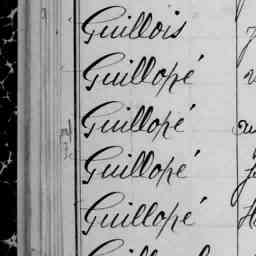 Guillois
Guillopé
Guillopé
Guillopé
Guillopé